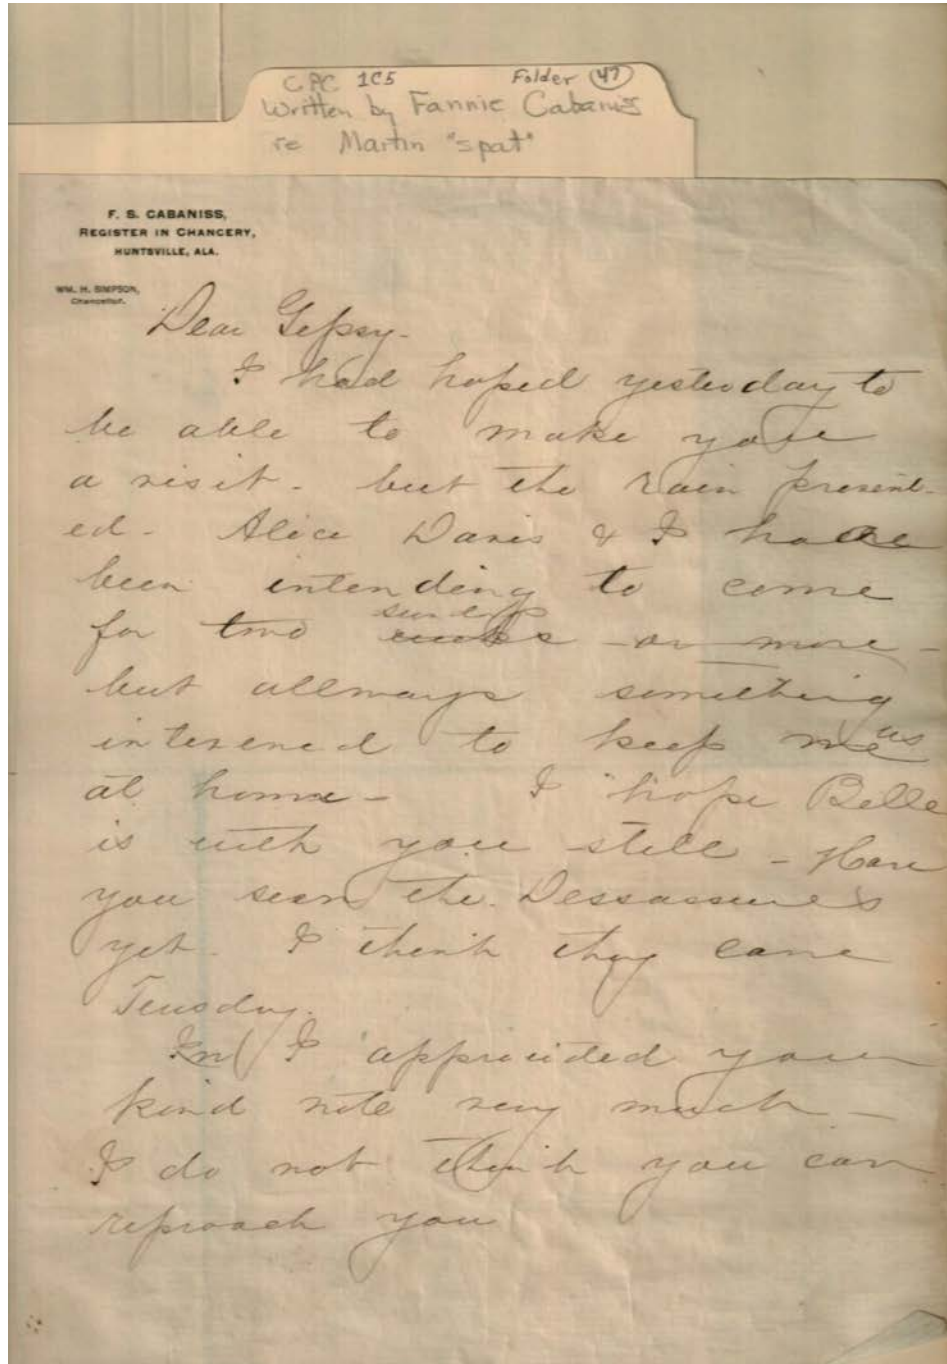 CPC 1C5 Folder 47
Written by Fannie Cabaniss
re Martin "spat"
F. S. CABANISS,
REGISTER IN CHANCERY,
HUNTSVILLE, ALA.
WM. H. SIMPSON,
Chancellor.
Dear Gypsy-
I had hoped yesterday to
be able to make you
a visit - but the rain prevent-
ed - Alice Davis & I have
been intending to come
for two weeks - or more -
but allways something
intervened to keep me us
at home - I hope Belle
is with you still - Have
you seen the Dessassures
yet. I think they came
Teusday.
I appreciated your
kind note very much -
I do not think you can
reproach you